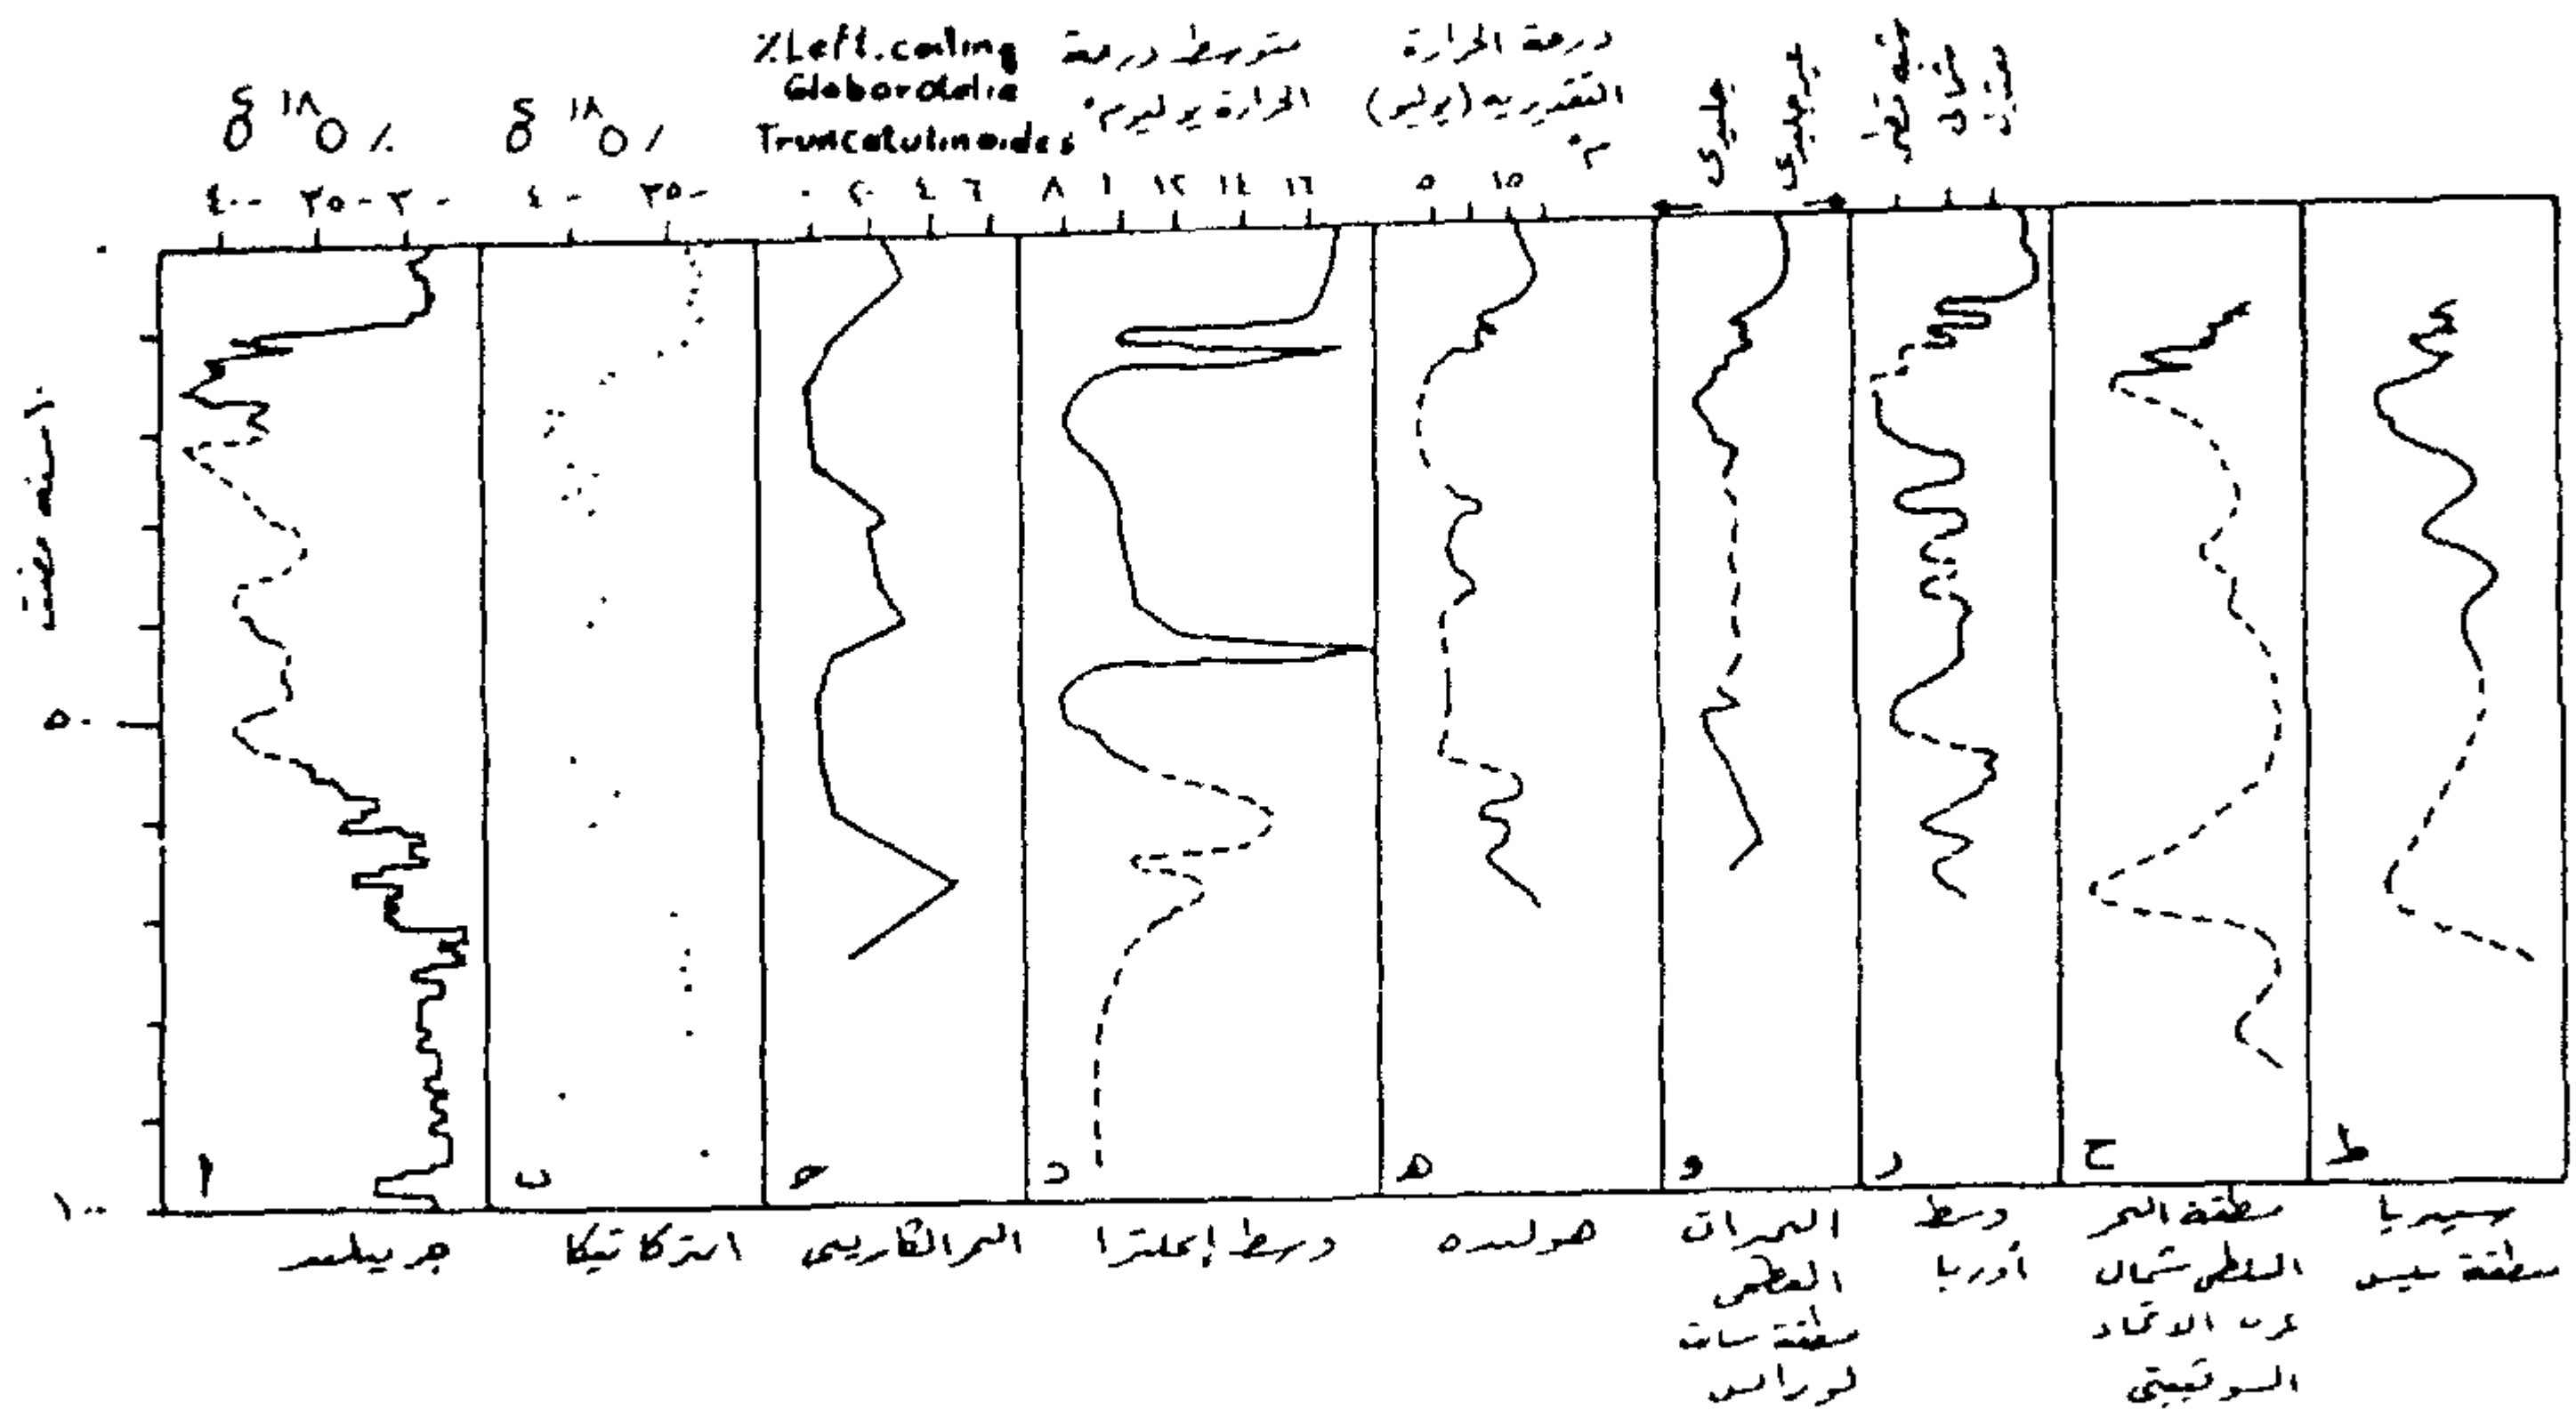 %Left.coiling
Globorotalia
Truncatulinoides
متوسط درجة
الحرارة يوليو م°
درجة الحرارة
التقديرية (يوليو)
م°
جليدى
غير جليدى
δ ١٨ O ٪
δ ١٨ O ٪
٤٠- ٣٥- ٣٠-
٤٠- ٣٥-
٠ ٢٠ ٤٠ ٦٠
٨ ١٠ ١٢ ١٤ ١٦
٥ ١٥
٠
٥٠
١٠٠
ا
ب
جـ
د
هـ
و
ز
ح
ط
جرينلند
انتركاتيكا
البحر الكاريبى
وسط إنجلترا
هولنده
البحيرات
العظمى
منطقة سانت
لورانس
وسط
أوربا
منطقة البحر
البلطى شمال
غرب الاتحاد
السوفييتى
سيبريا
منطقة